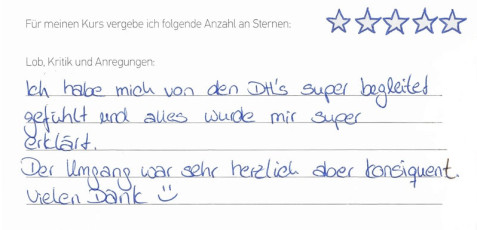 Für meinen Kurs vergebe ich folgende Anzahl an Sternen:
Lob, Kritik und Anregungen:
Ich habe mich von den DH's super begleitet
gefühlt und alles wurde mir super
erklärt.
Der Umgang war sehr herzlich aber konsiquent.
Vielen Dank